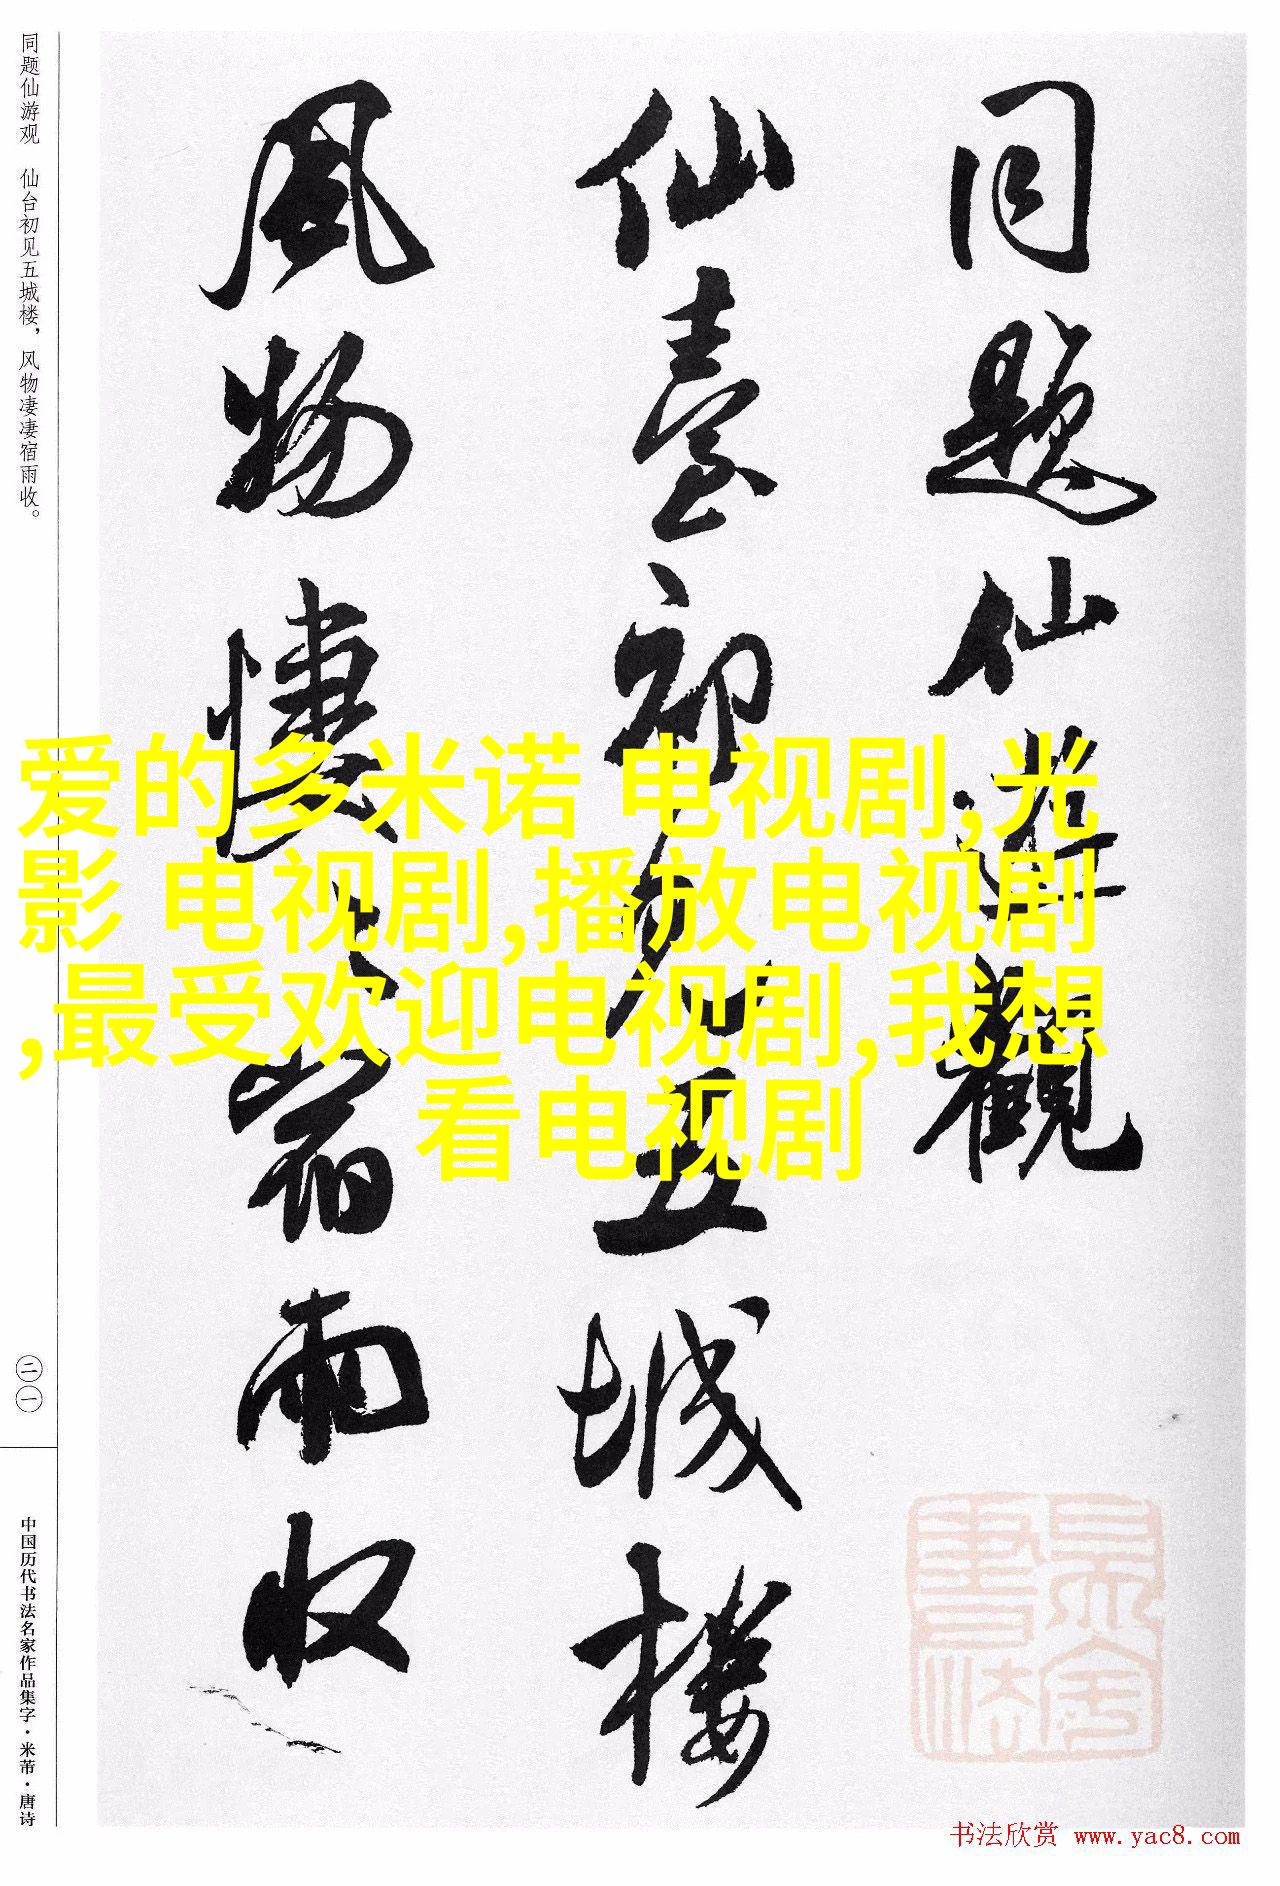 同题仙游观　仙台初见五城楼，风物凄凄宿雨收。
二一
中国历代书法名家作品集字·米芾·唐诗
同題仙游觀
仙臺初見五城樓
風物悽〻宿雨收
爱的多米诺 电视剧,光
影 电视剧,播放电视剧
,最受欢迎电视剧,我想
看电视剧
书法欣赏 www.yac8.com